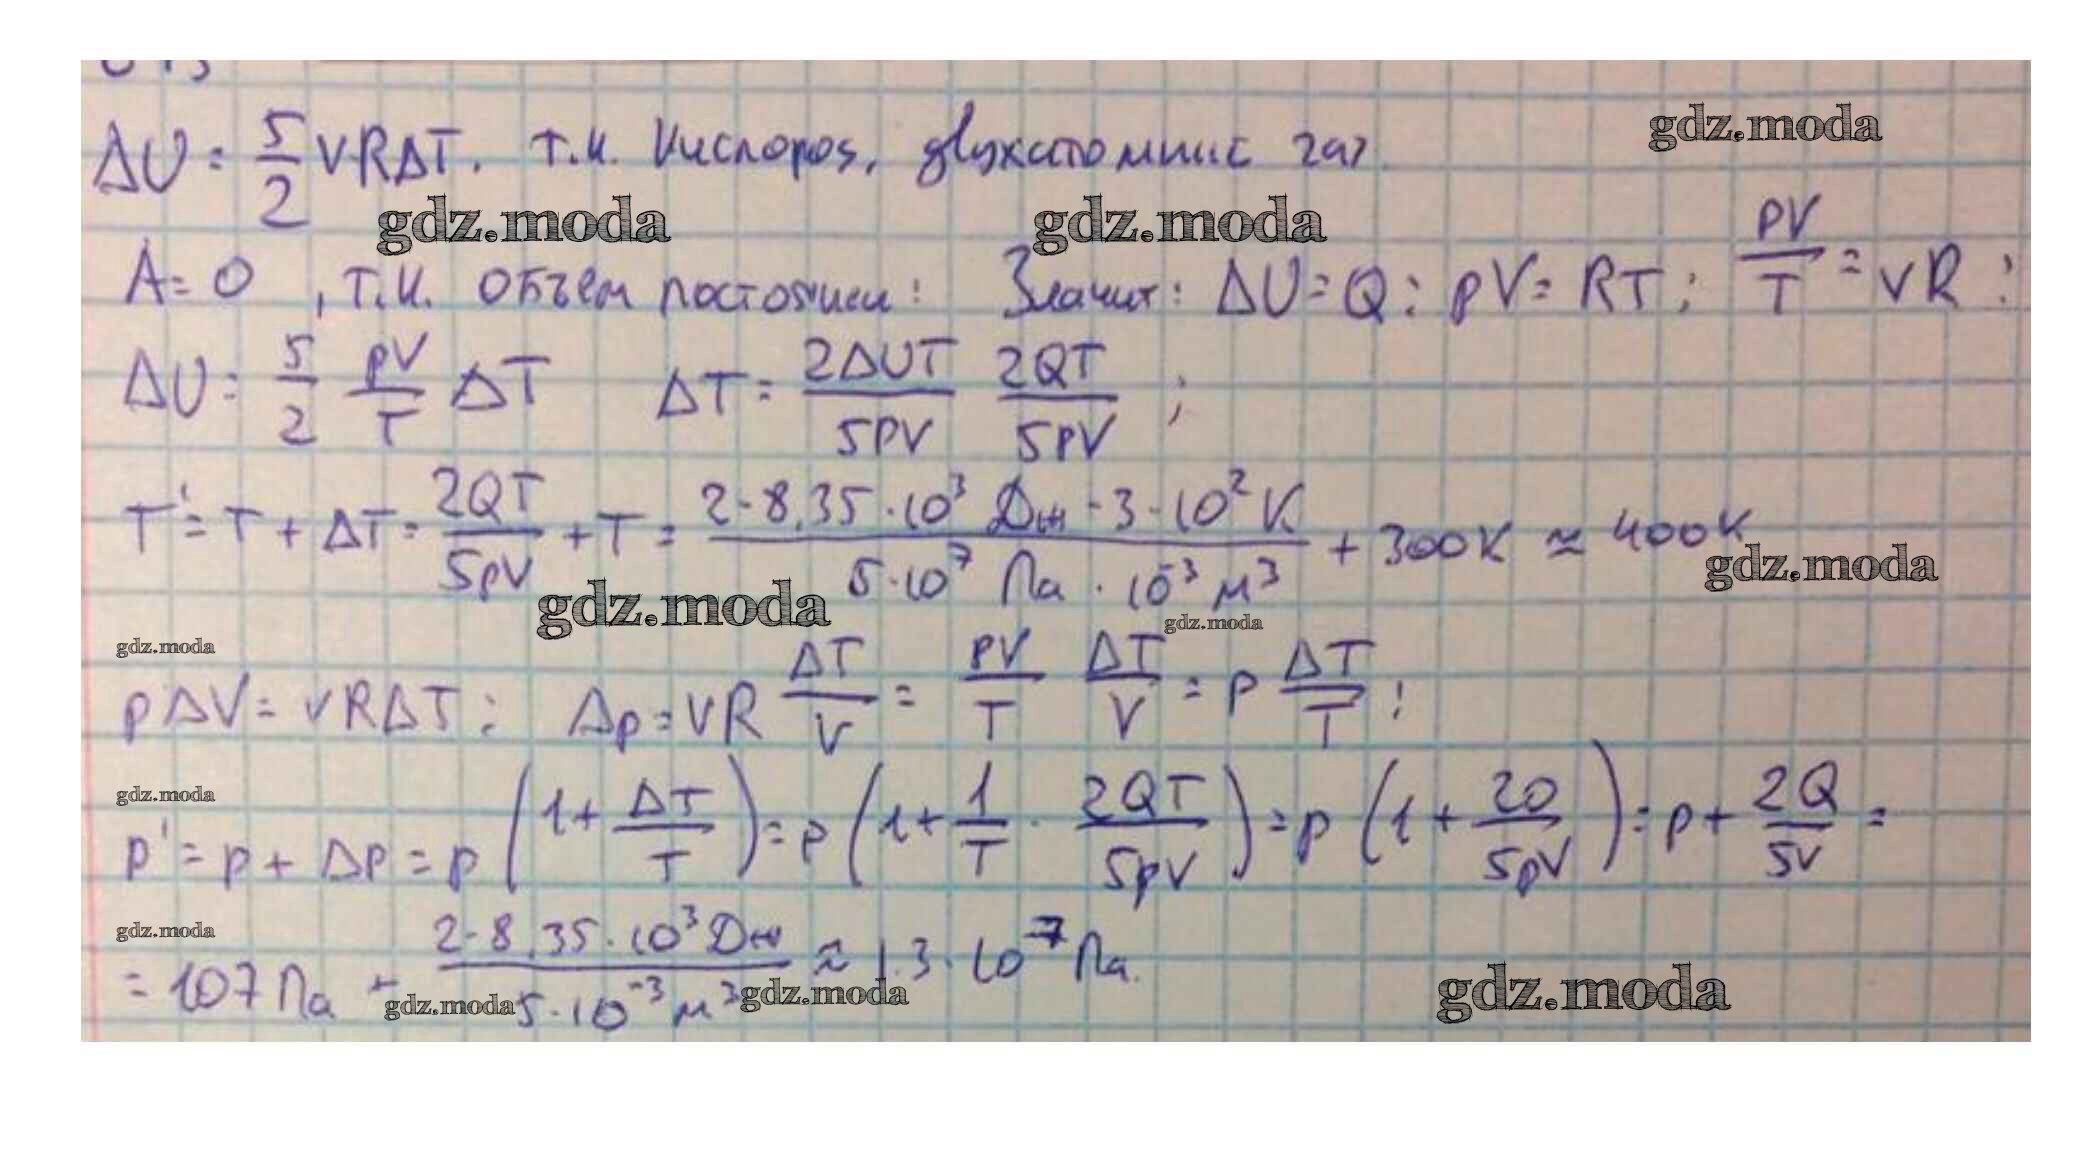 ΔU = 5/2 νRΔT. т.к. Кислород, двухатомный газ.
gdz.moda
gdz.moda gdz.moda
A = 0, т.к. объём постоянен: Значит: ΔU = Q: pV = RT; pV/T = νR;
ΔU = 5/2 pV/T ΔT ΔT = 2ΔUT/5pV 2QT/5pV;
T' = T + ΔT = 2QT/5pV + T = 2·8,35·10³ Дж·3·10² К / 5·10⁷ Па·10⁻³ м³ + 300К ≈ 400К
gdz.moda
gdz.moda gdz.moda
gdz.moda
pΔV = νRΔT; Δp = νR ΔT/V = pV/T ΔT/V = p ΔT/T;
gdz.moda
p' = p + Δp = p(1 + ΔT/T) = p(1 + 1/T · 2QT/5pV) = p(1 + 2Q/5pV) = p + 2Q/5V =
gdz.moda
= 107 Па + 2·8,35·10³ Дж / 5·10⁻³ м³ ≈ 1.3·10⁷ Па.
gdz.moda gdz.moda gdz.moda